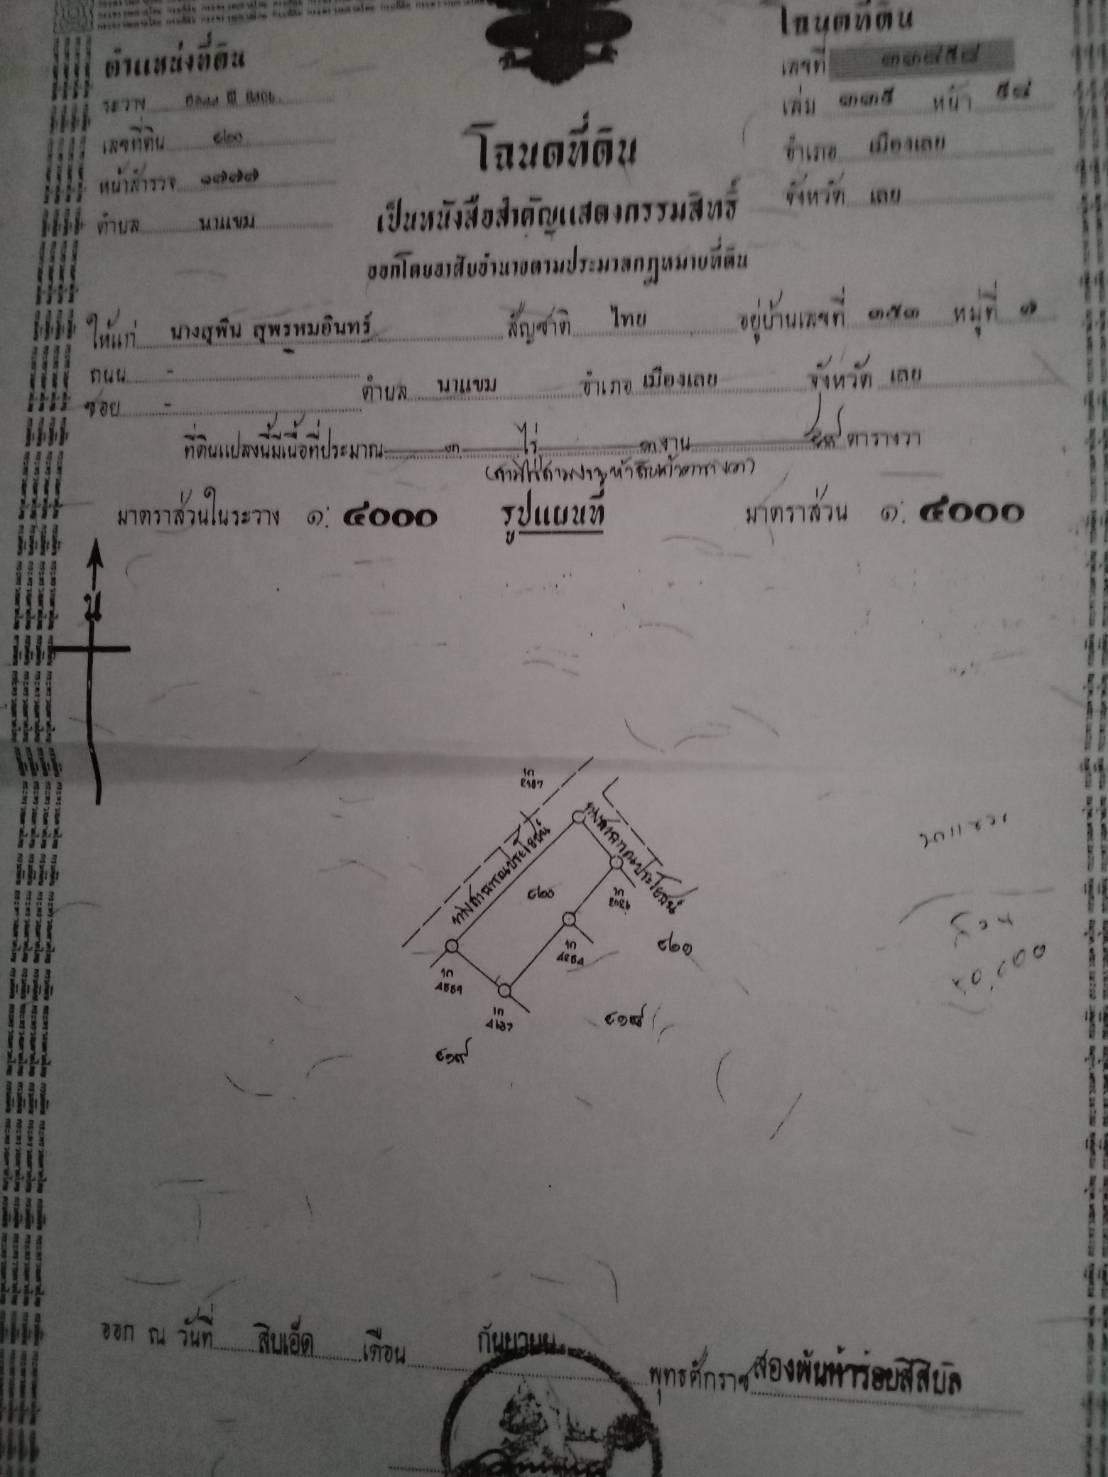 ตำแหน่งที่ดิน
ระวาง
เลขที่ดิน ๔๒๐
หน้าสำรวจ ๑๗๗๗
ตำบล นาแขม
โฉนดที่ดิน
เลขที่
เล่ม ๓๓๕ หน้า ๕๘
อำเภอ เมืองเลย
จังหวัด เลย
โฉนดที่ดิน
เป็นหนังสือสำคัญแสดงกรรมสิทธิ์
ออกโดยอาศัยอำนาจตามประมวลกฎหมายที่ดิน
ให้แก่ นางสุพิน สุพรหมอินทร์ สัญชาติ ไทย อยู่บ้านเลขที่ ๓๕๓ หมู่ที่ ๑
ถนน -
ซอย - ตำบล นาแขม อำเภอ เมืองเลย จังหวัด เลย
ที่ดินแปลงนี้มีเนื้อที่ประมาณ ๓ ไร่ ๓ งาน ๕๙ ตารางวา
(สามไร่สามงานห้าสิบเก้าตารางวา)
มาตราส่วนในระวาง ๑: ๔๐๐๐ รูปแผนที่ มาตราส่วน ๑: ๔๐๐๐
น
ทางสาธารณประโยชน์
ทางสาธารณประโยชน์
๔๒๐
๔๒๑
๔๑๘
๔๑๙
ออก ณ วันที่ สิบเอ็ด เดือน กันยายน พุทธศักราช สองพันห้าร้อยสี่สิบ